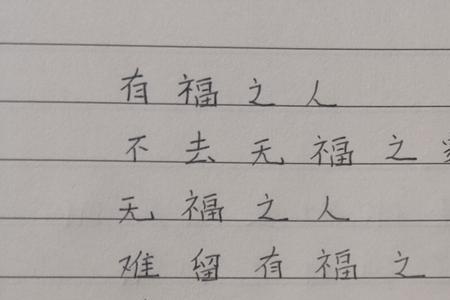 有福之人
不去无福之
无福之人
难留有福之